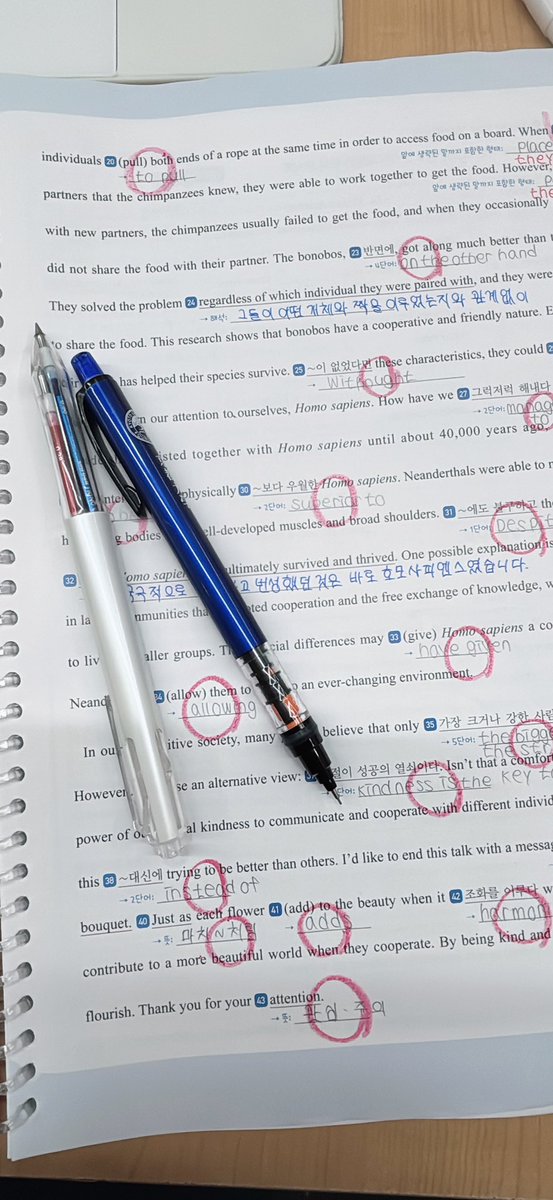 individuals 20 (pull) both ends of a rope at the same time in order to access food on a board. When
→ to pull
앞에 생략된 말까지 포함한 형태: place
they
partners that the chimpanzees knew, they were able to work together to get the food. However,
앞에 생략된 말까지 포함한 형태:
with new partners, the chimpanzees usually failed to get the food, and when they occasionally
did not share the food with their partner. The bonobos, 23 반면에, got along much better than
→ 4단어: on the other hand
They solved the problem 24 regardless of which individual they were paired with, and they were
→ 해석: 그들이 어떤 개체와 짝을 이루었는지와 관계없이
to share the food. This research shows that bonobos have a cooperative and friendly nature.
has helped their species survive. 25 ~이 없었다면 these characteristics, they could
→ Without
n our attention to ourselves, Homo sapiens. How have we 27 그럭저럭 해내다
→ 2단어: manag
to
isted together with Homo sapiens until about 40,000 years ago,
physically 30 ~보다 우월한 Homo sapiens. Neanderthals were able to
→ 2단어: superior to
bodies ll-developed muscles and broad shoulders. 31 ~에도 불구하고
→ 1단어: Despit
32 omo sapien ultimately survived and thrived. One possible explanation is
고 번성했던 것은 바로 호모사피엔스였습니다.
in la mmunities tha ted cooperation and the free exchange of knowledge,
to liv aller groups. T cial differences may 33 (give) Homo sapiens a
→ have given
Neand 34 (allow) them to o an ever-changing environment.
→ allowing
In ou itive society, many believe that only 35 가장 크거나 강한
→ 5단어: the bigge
the str
However se an alternative view: 절이 성공의 열쇠이다. Isn't that a comfort
단어: kindness is the key
power of o al kindness to communicate and cooperate with different individ
this 38 ~대신에 trying to be better than others. I'd like to end this talk with a messag
→ 2단어: instead of
bouquet. 40 Just as each flower 41 (add) to the beauty when it 42 조화를 이루다
→ 뜻: 마치 ~처럼 → add harmon
contribute to a more beautiful world when they cooperate. By being kind and
flourish. Thank you for your 43 attention.
→ 뜻: 관심·주의